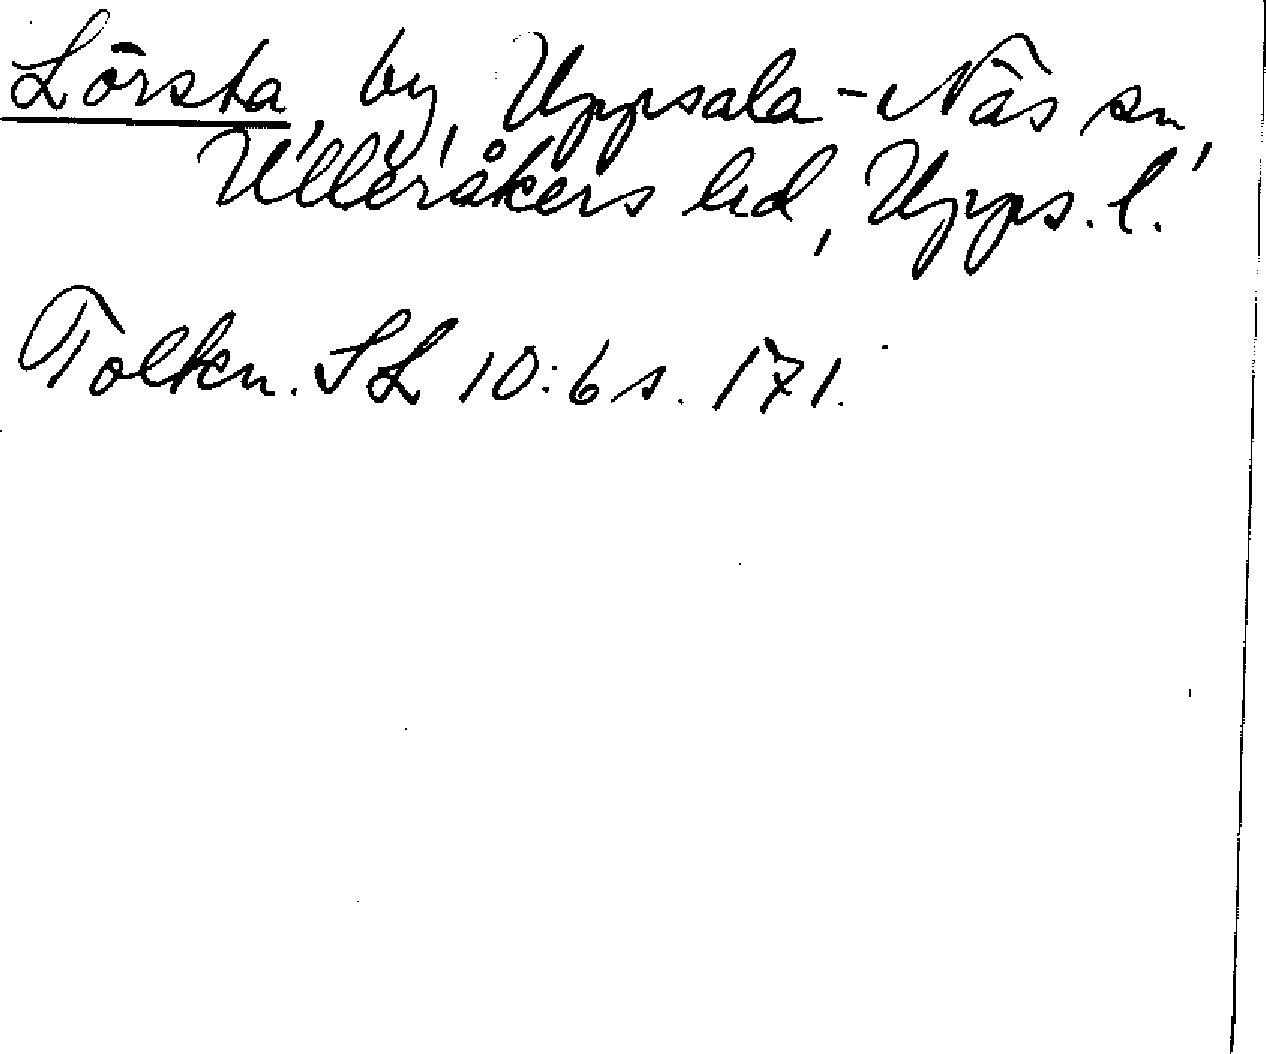 Lörsta, by, Uppsala-Näs sn,
Ulleråkers hd, Upps. l.
Tolkn. SL 10:6 s. 171.